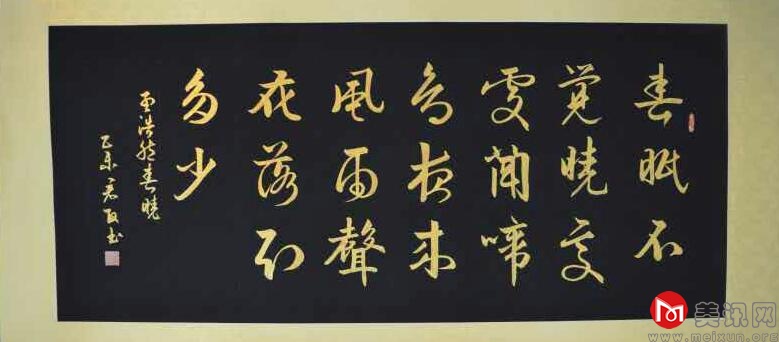 春眠不
覺曉處
處聞啼
鳥夜來
風雨聲
花落知
多少
孟浩然春曉
乙未
美讯网
www.meixun.org